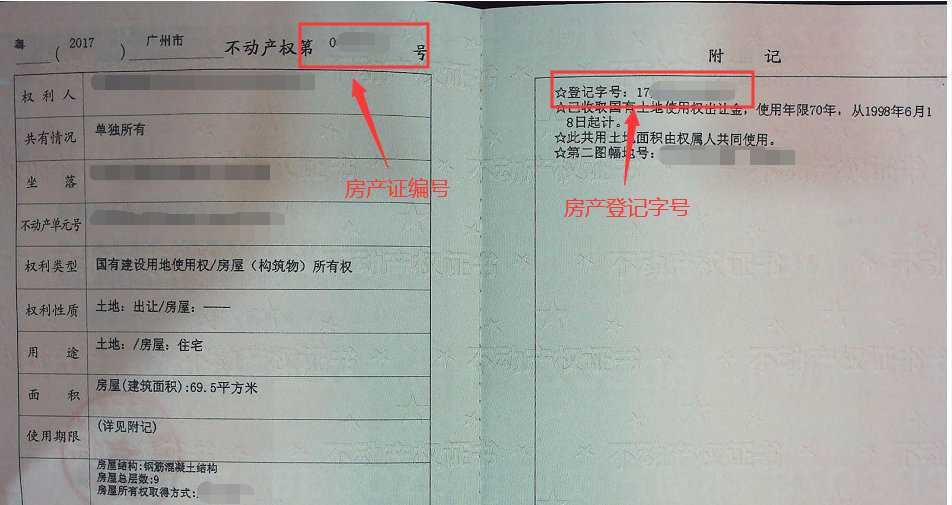 粤 ( 2017 ) 广州市 不动产权第 0 号
权利人
共有情况 单独所有
坐落
不动产单元号
权利类型 国有建设用地使用权/房屋（构筑物）所有权
权利性质 土地：出让/房屋：——
用途 土地：/房屋：住宅
面积 房屋(建筑面积):69.5平方米
使用期限 (详见附记)
房屋结构:钢筋混凝土结构
房屋总层数:9
房屋所有权取得方式:
房产证编号
附记
☆登记字号：17
☆已收取国有土地使用权出让金，使用年限70年，从1998年6月1
8日起计。
☆此共用土地面积由权属人共同使用。
☆第二图幅地号：
房产登记字号